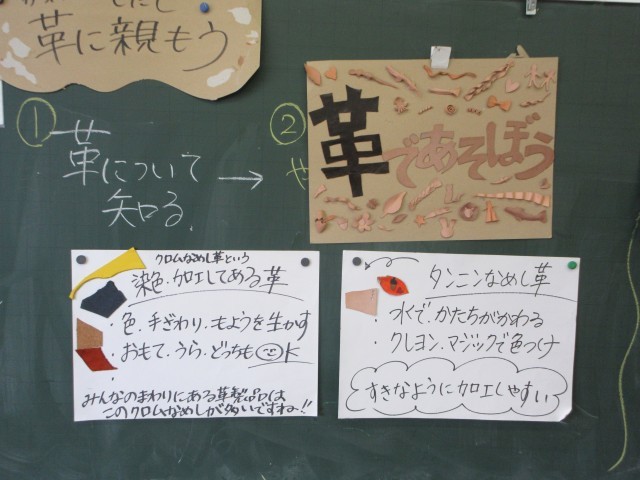 革に親もう
①
革について
知る
→
②
や
革であそぼう
クロムなめし革という
染色・加工してある革
・色・手ざわり・もようを生かす
・おもて・うら・どっちもOK
・
みんなのまわりにある革製品は
このクロムなめしが多いですね!!
タンニンなめし革
・水で・かたちがかわる
・クレヨン・マジックで色つけ
すきなように加工しやすい